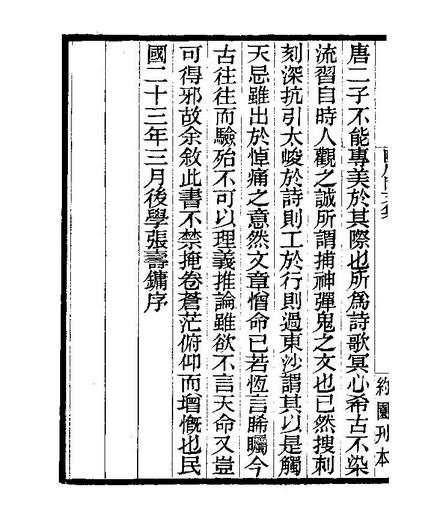 唐二子不能專美於其際也所爲詩歌冥心希古不染
流習自時人觀之誠所謂捕神彈鬼之文也已然搜刺
刻深抗引太峻於詩則工於行則過東沙謂其以是觸
天忌雖出於悼痛之意然文章憎命已若恆言睎矚今
古往往而驗殆不可以理義推論雖欲不言天命又豈
可得邪故余敘此書不禁掩卷蒼茫俯仰而增慨也民
國二十三年三月後學張壽鏞序
約園刊本